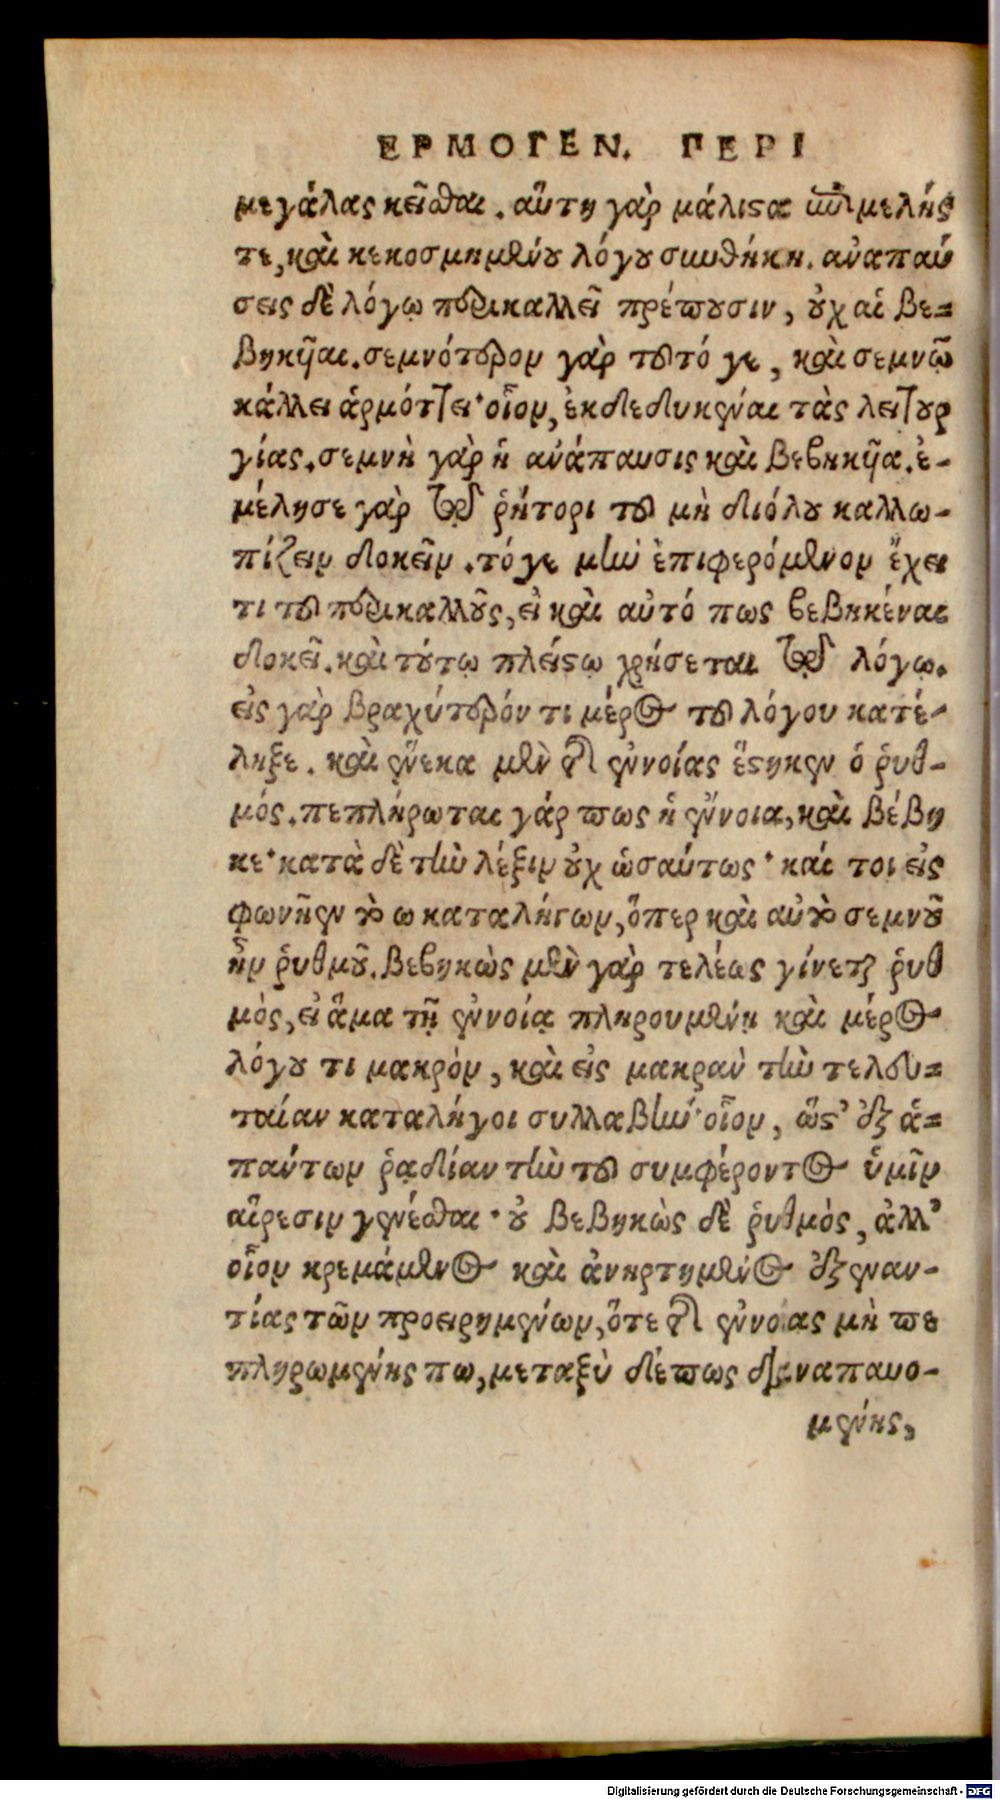 ΕΡΜΟΓΕΝ. ΠΕΡΙ
μεγάλας κεῖσθαι. αὕτη γὰρ μάλιστα ἐμμελής
τε, καὶ κεκοσμημένου λόγου συνθήκη. ἀναπαύ
σεις δὲ λόγῳ περικαλλεῖ πρέπουσιν, οὐχ αἱ βε=
βηκῆαι. σεμνότερον γὰρ τοῦτό γε, καὶ σεμνῷ
κάλλει ἁρμόττει· οἷον, ἐκδεδυκέναι τὰς λειτουρ
γίας. σεμνὴ γὰρ ἡ ἀνάπαυσις καὶ βεβηκῆα. ἐ-
μέλησε γὰρ τῷ ῥήτορι τοῦ μὴ διόλου καλλω-
πίζειν δοκεῖν. τό γε μὴν ἐπιφερόμενον ἔχει
τι τοῦ περικαλλοῦς, εἰ καὶ αὐτό πως βεβηκέναι
δοκεῖ. καὶ τούτῳ πλείστῳ χρήσεται τῷ λόγῳ.
εἰς γὰρ βραχύτερόν τι μέρος τοῦ λόγου κατέ-
ληξε. καὶ ἕνεκα μὲν τῆς ἐννοίας ἕστηκεν ὁ ῥυθ-
μός. πεπλήρωται γάρ πως ἡ ἔννοια, καὶ βέβη
κε· κατὰ δὲ τὴν λέξιν οὐχ ὡσαύτως· καί τοι εἰς
φωνῆεν τὸ ω καταλήγων, ὅπερ καὶ αὐτὸ σεμνοῦ
ἦν ῥυθμοῦ. βεβηκὼς μὲν γὰρ τελέως γίνεται ῥυθ
μὸς, εἰ ἅμα τῇ ἐννοίᾳ πληρουμένῃ καὶ μέρος
λόγου τι μακρὸν, καὶ εἰς μακρὰν τὴν τελευ=
ταίαν καταλήγοι συλλαβήν· οἷον, ὥστ' ἐξ ἁ=
πάντων ῥᾳδίαν τὴν τοῦ συμφέροντος ὑμῖν
αἵρεσιν γενέσθαι· οὐ βεβηκὼς δὲ ῥυθμὸς, ἀλλ'
οἷον κρεμάμενος καὶ ἀνηρτημένος ἐξ εναν-
τίας τῶν προειρημένων, ὅτε τῆς ἐννοίας μὴ πε
πληρωμένης πω, μεταξὺ δέ πως διαναπαυο-
μένης,
Digitalisierung gefördert durch die Deutsche Forschungsgemeinschaft - DFG